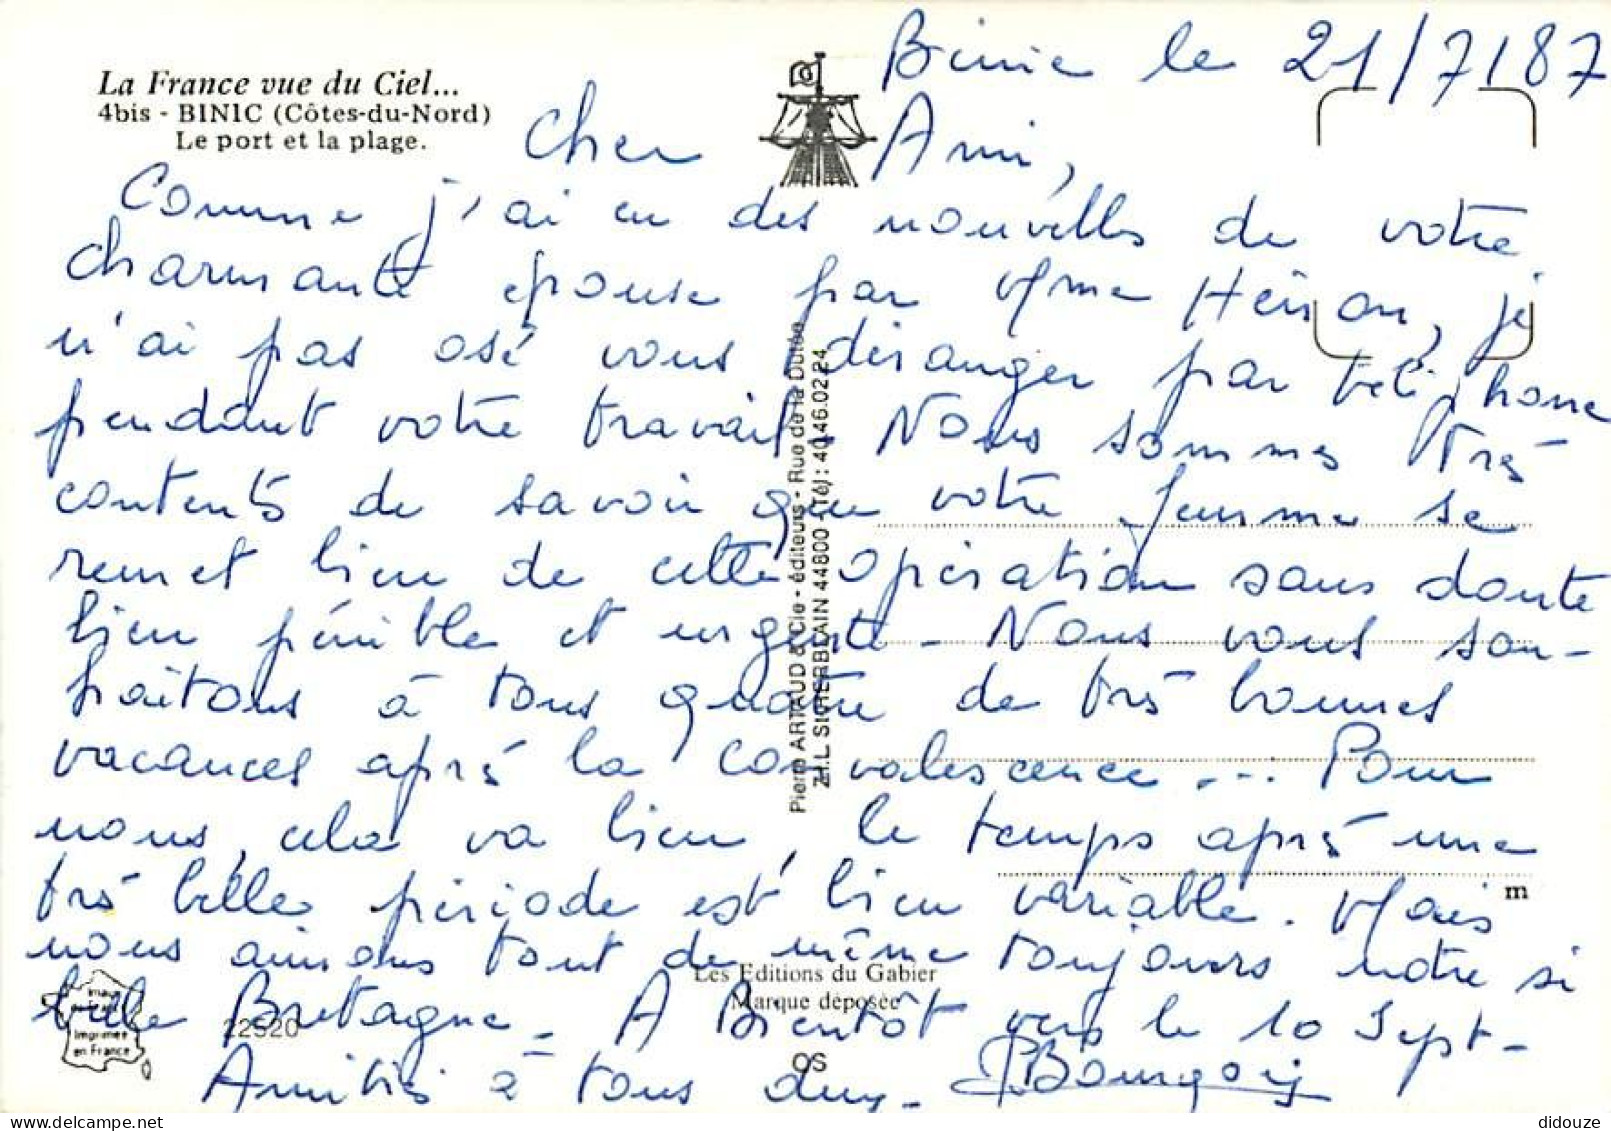 Binic le 21/7/87
La France vue du Ciel...
4bis - BINIC (Côtes-du-Nord)
Le port et la plage.
Cher Ami,
Comme j'ai eu des nouvelles de votre
charmante épouse par Mme Hérson, je
n'ai pas osé vous déranger par téléphone
pendant votre travail. Nous sommes très
contents de savoir que votre femme se
remet bien de cette opération sans doute
bien pénible et urgente - Nous vous sou-
haitons à tous quatre de très bonnes
vacances après la convalescence ... Pour
nous, cela va bien, le temps après une
très belle période est bien variable. Mais
nous aimons tout de même toujours notre si
belle Bretagne - A Bientôt vers le 10 Sept-
Amitiés à tous deux - Bourgois
Pierre ARTAUD & Cie - éditeurs - Rue de la Dutée
Z.I.L. ST HERBLAIN 44800 - Tél : 40.46.02.24
m
Les Editions du Gabier
Marque déposée
Imprimée
en France
22520
OS
didouze